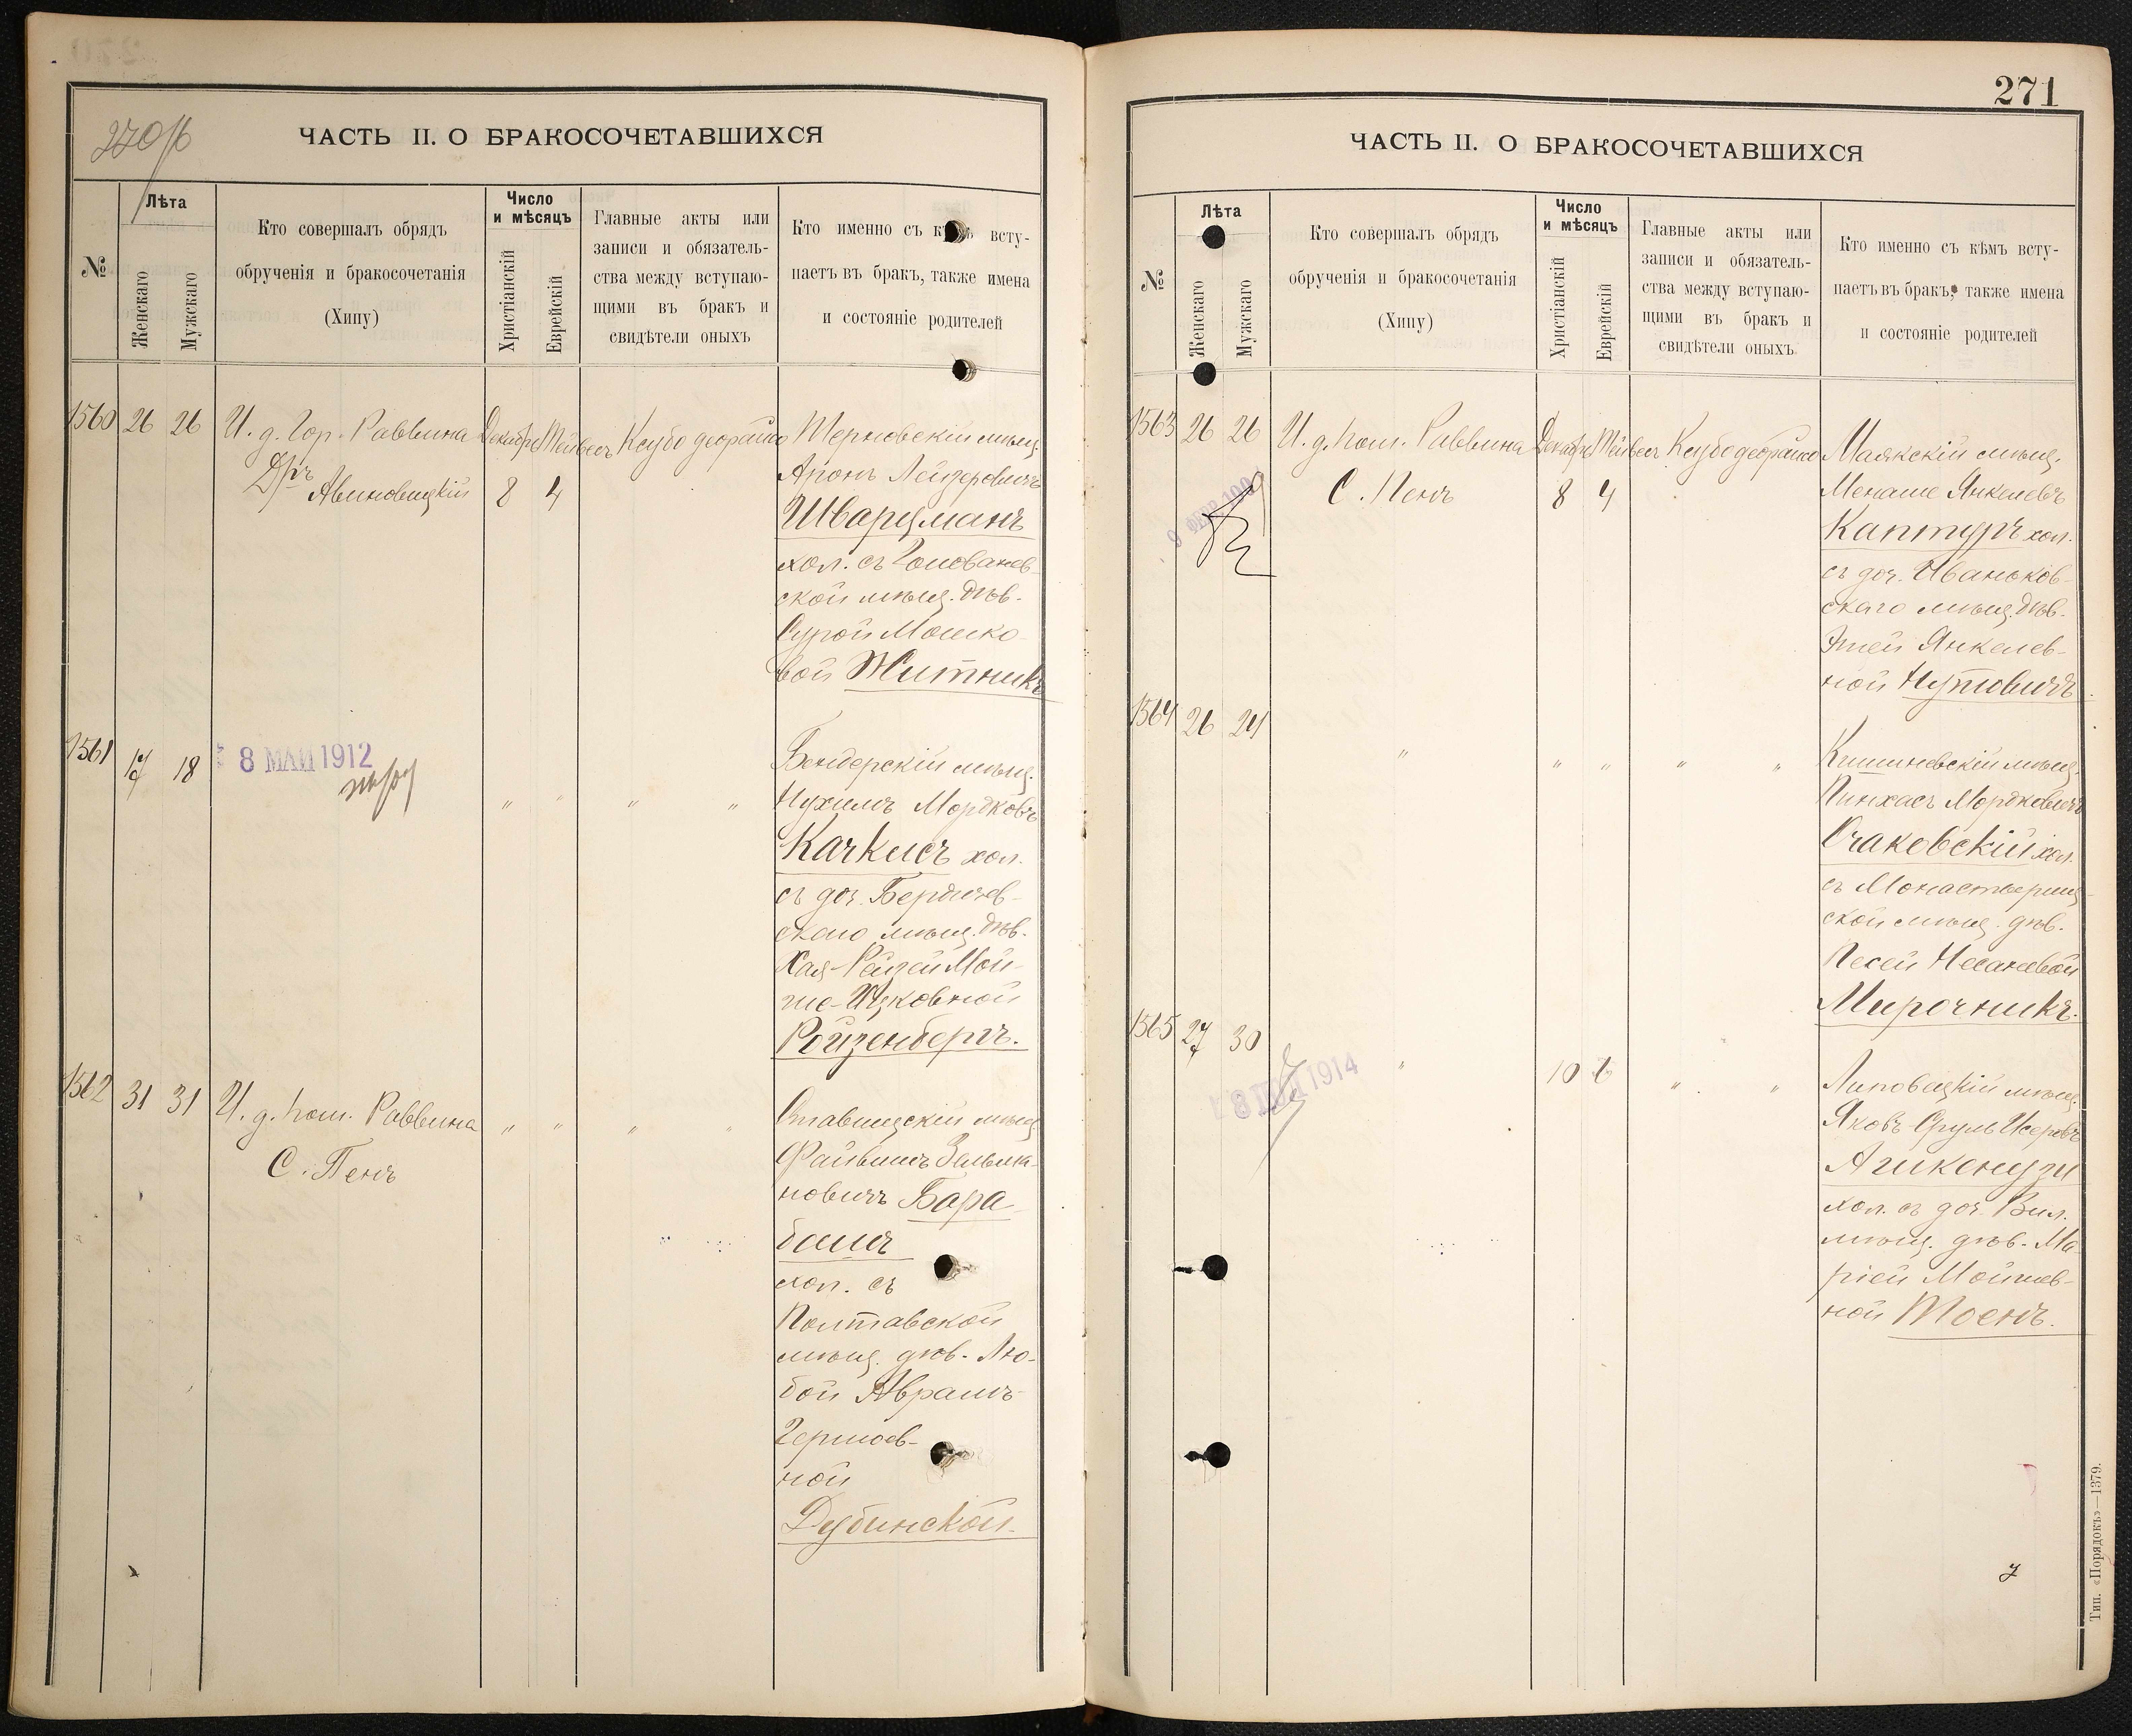 270 об
ЧАСТЬ II. О БРАКОСОЧЕТАВШИХСЯ
№
Лѣта
Женскаго
Мужскаго
Кто совершалъ обрядъ
обрученія и бракосочетанія
(Хипу)
Число
и мѣсяцъ
Христіанскій
Еврейскій
Главные акты или
записи и обязатель-
ства между вступаю-
щими въ бракъ и
свидѣтели оныхъ
Кто именно съ всту-
паетъ въ бракъ, также имена
и состояніе родителей
1560 26 26 И. д. Гор. Раввина Декабрь Тейвесъ Ксубо деорайсо Терновскій мѣщ.
Д-ръ Авиновицкій 8 4 Аронъ Лейзеровичъ
Шварцманъ
хол. съ Голованев-
ской мѣщ. дѣв.
Сурой Мошко-
вой Житникъ
1561 17 18 8 МАЙ 1912 Бендерскій мѣщ.
" " " " Нухимъ Мордковъ
Качкисъ хол.
съ доч. Бердичев-
скаго мѣщ. дѣв.
Хая-Рейзей Мой-
ше-Ицковной
Ройзенбергъ.
1562 31 31 И. д. пом. Раввина " " " " Ставищскій мѣщ.
С. Пенъ Файвишъ Зельма-
новичъ Бара-
башъ
хол. съ
Полтавской
мѣщ. дѣв. Лю-
бой Абрамъ-
Гершов-
ной
Дубинской.
271
ЧАСТЬ II. О БРАКОСОЧЕТАВШИХСЯ
№
Лѣта
Женскаго
Мужскаго
Кто совершалъ обрядъ
обрученія и бракосочетанія
(Хипу)
Число
и мѣсяцъ
Христіанскій
Еврейскій
Главные акты или
записи и обязатель-
ства между вступаю-
щими въ бракъ и
свидѣтели оныхъ.
Кто именно съ кѣмъ всту-
паетъ въ бракъ, также имена
и состояніе родителей
1563 26 26 И. д. пом. Раввина Декабрь Тейвесъ Ксубо деорайсо Маякскій мѣщ.
С. Пенъ 8 4 Менаше Янкелевъ
Каптуръ хол.
съ доч. Иваньков-
скаго мѣщ. дѣв.
Этей Янкелев-
ной Нутовичъ.
1564 26 24 " " " " " Кишиневскій мѣщ.
Пинхасъ Мордковичъ
Очаковскій хол.
съ Монастырищ-
ской мѣщ. дѣв.
Песей Несановой
Мирочникъ.
1565 27 30 " 10 6 " " Липовецкій мѣщ.
1914
Яковъ-Сруль Исеровъ
хол. съ доч. Вил.
мѣщ. дѣв. Ма-
ріей Мойшев-
ной Тоенъ.
Тип. «Порядокъ»—1379.